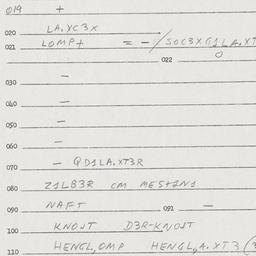 019 +
020 LA.XC3X
021 LOMP+ = -/SOC3XG1LA.XT
022 O
030 -
040 -
050 -
060 -
070 - QD1LA.XT3R
080 Z1LB3R OM MES+1N1
090 NAFT 091 -
100 KNOJT D3R-KNOJT
110 HENGL,OMP HENGL,A.XT3